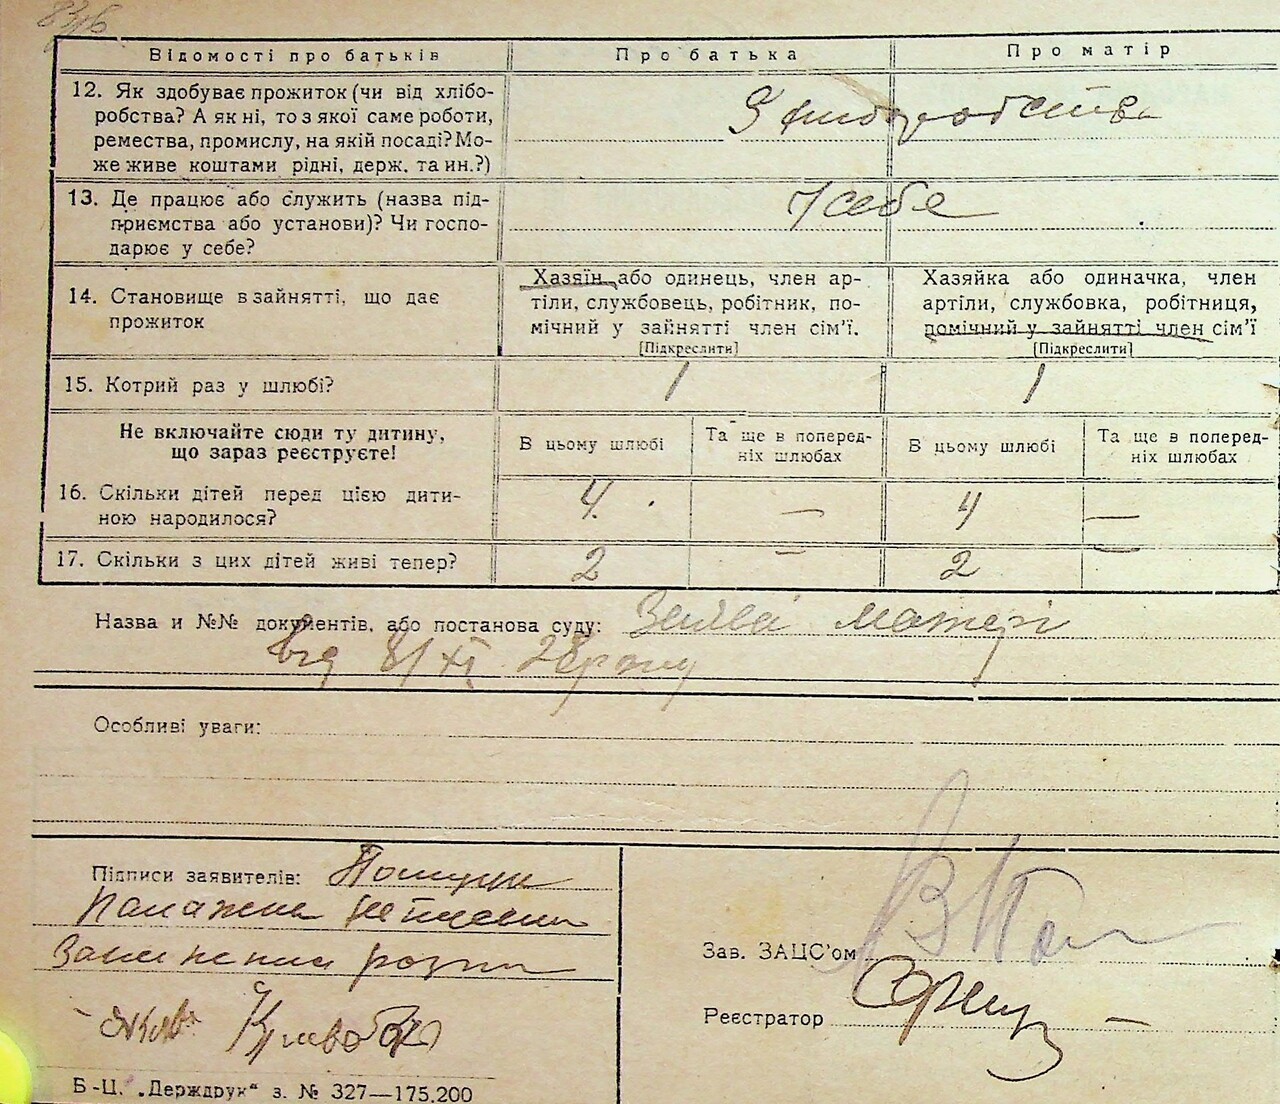 Відомості про батьків
Про батька
Про матір
12. Як здобуває прожиток (чи від хлібо-
робства? А як ні, то з якої саме роботи,
ремества, промислу, на якій посаді? Мо-
же живе коштами рідні, держ. та ин.?)
З хліборобства
13. Де працює або служить (назва під-
приємства або установи)? Чи госпо-
дарює у себе?
У себе
14. Становище в зайнятті, що дає
прожиток
Хазяїн або одинець, член ар-
тіли, службовець, робітник, по-
мічний у зайнятті член сім'ї.
[Підкреслити]
Хазяйка або одиначка, член
артіли, службовка, робітниця,
помічний у зайнятті член сім'ї
[Підкреслити]
15. Котрий раз у шлюбі?
1
1
Не включайте сюди ту дитину,
що зараз реєструєте!
В цьому шлюбі
Та ще в поперед-
ніх шлюбах
В цьому шлюбі
Та ще в поперед-
ніх шлюбах
16. Скільки дітей перед цією дити-
ною народилося?
4
—
4
—
17. Скільки з цих дітей живі тепер?
2
—
2
—
Назва и №№ документів, або постанова суду: Заява матері
від 8/XI 28 року
Особливі уваги:
Підписи заявителів:
неписьменна
За неписьм розпис
Зав. ЗАЦС'ом
Реєстратор
Б-Ц. „Держдрук“ з. № 327—175.200